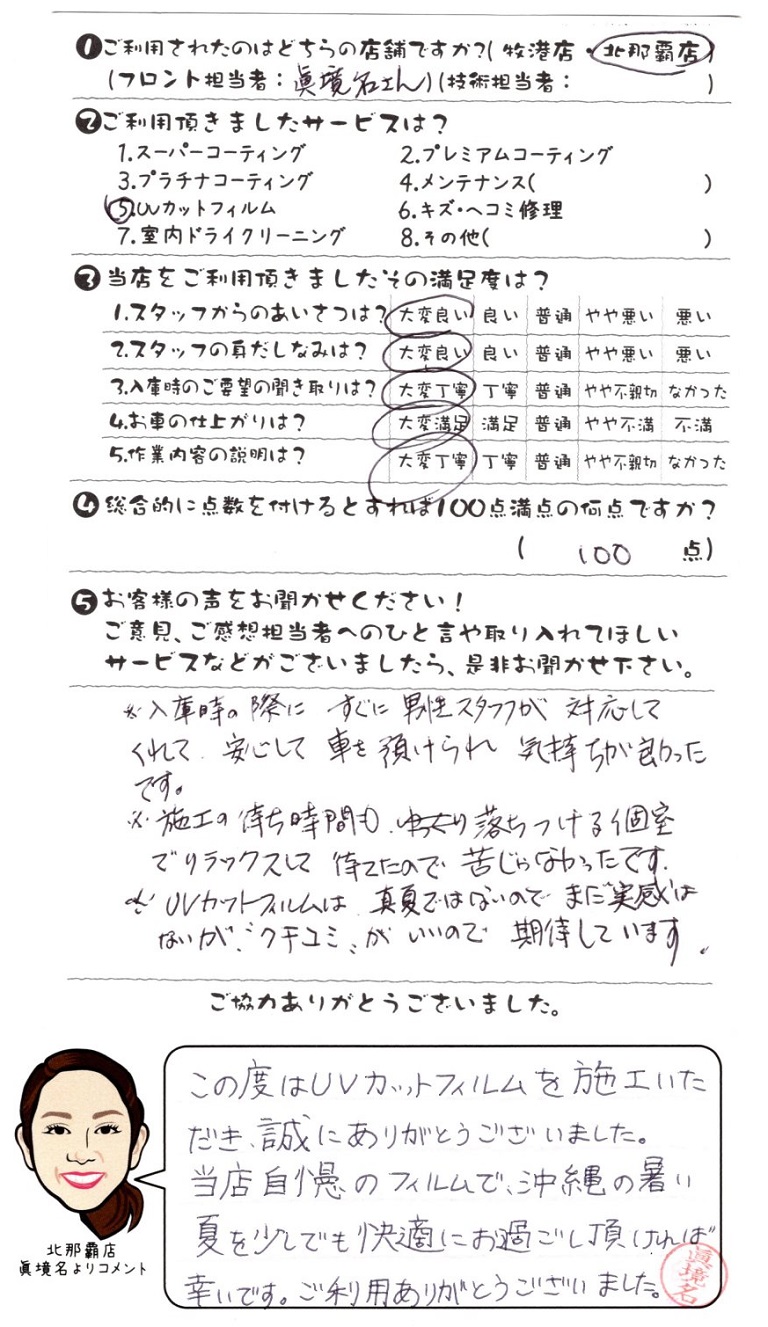 ❶ご利用されたのはどちらの店舗ですか?( 牧港店 ・ 北那覇店 )
(フロント担当者 : 眞境名さん)(技術担当者 :                )
❷ご利用頂きましたサービスは?
1.スーパーコーティング 2.プレミアムコーティング
3.プラチナコーティング 4.メンテナンス( )
5.UVカットフィルム 6.キズ・ヘコミ修理
7.室内ドライクリーニング 8.その他( )
❸当店をご利用頂きましたその満足度は?
1.スタッフからのあいさつは? 大変良い 良い 普通 やや悪い 悪い
2.スタッフの身だしなみは? 大変良い 良い 普通 やや悪い 悪い
3.入庫時のご要望の聞き取りは? 大変丁寧 丁寧 普通 やや不親切 なかった
4.お車の仕上がりは? 大変満足 満足 普通 やや不満 不満
5.作業内容の説明は? 大変丁寧 丁寧 普通 やや不親切 なかった
❹総合的に点数を付けるとすれば100点満点の何点ですか?
( 100 点)
❺お客様の声をお聞かせください!
ご意見、ご感想担当者へのひと言や取り入れてほしい
サービスなどがございましたら、是非お聞かせ下さい。
※入庫時の際に すぐに 男性スタッフが 対応して
くれて、安心して 車を 預けられ 気持ちが良かった
です。
※施工の待ち時間も、ゆったり落ちつける個室
でリラックスして 待てたので 苦じゃなかったです。
※UVカットフィルムは、真夏ではないので まだ実感は
ないが、"クチコミ"が いいので 期待しています。
ご協力ありがとうございました。
この度はUVカットフィルムを施工いた
だき、誠にありがとうございました。
当店自慢のフィルムで、沖縄の暑い
夏を少しでも快適にお過ごし頂ければ
幸いです。ご利用ありがとうございました。
眞境名
北那覇店
眞境名よりコメント